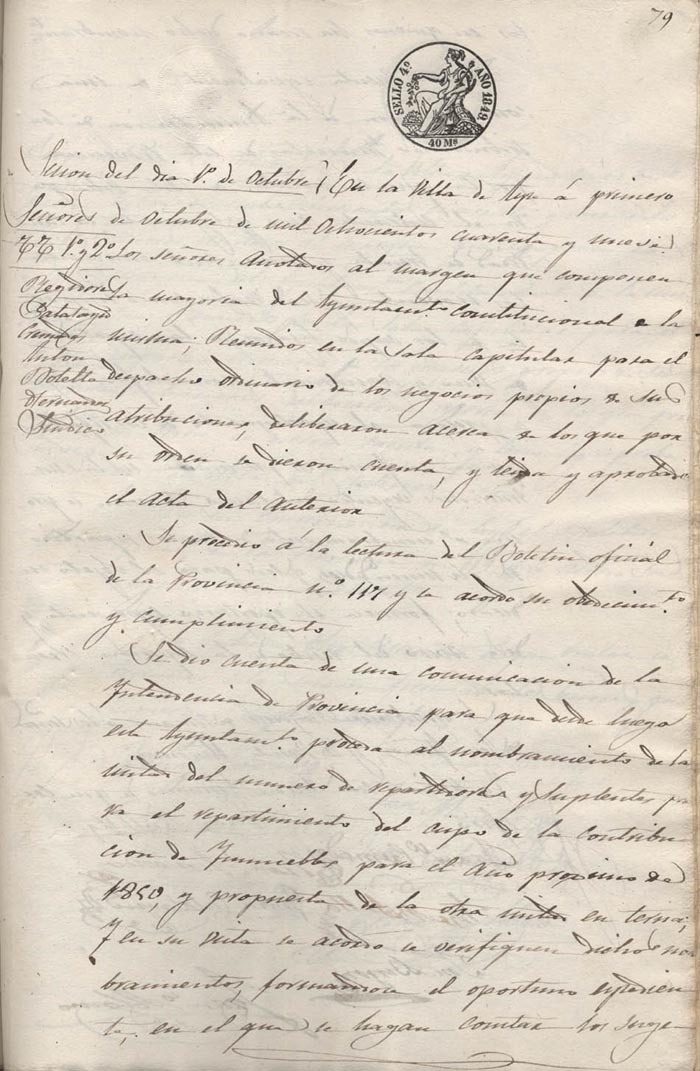 79
SELLO 4º AÑO 1849
40 Ms
Sesion del dia 1º de Octubre
En la Villa de Aspe á primero
Señores
de Octubre de mil Ochocientos cuarenta y nueve:
TT 1º y 2º
Los señores Anotados al margen que componen
Regidores
la mayoria del Ayuntamto Constitucional de la
Calatayud
misma; Reunidos en la Sala Capitular para el
Cremades
Anton
Botella
despacho ordinario de los negocios propios de sus
Sindico
atribuciones, deliberaron acerca de los que por
su orden se dieron cuenta, y leida y aprobada
el Acta del Anterior
Se procedio á la lectura del Boletin oficial
de la Provincia nº 117 y se acordo su obedecimto
y cumplimiento
Se dio cuenta de una comunicacion de la
Intendencia de Provincia para que desde luego
este Ayuntamto proceda al nombramiento de la
mitad del numero de repartidores y Suplentes pa
ra el repartimiento del cupo de la contribu
cion de Inmuebles para el Año proximo de
1850, y propuesta de la otra mitad en terna;
Y en su vista se acordo se verifiquen dichos nom
bramientos, formandose el oportuno espedien
te, en el que se hagan constar los suge